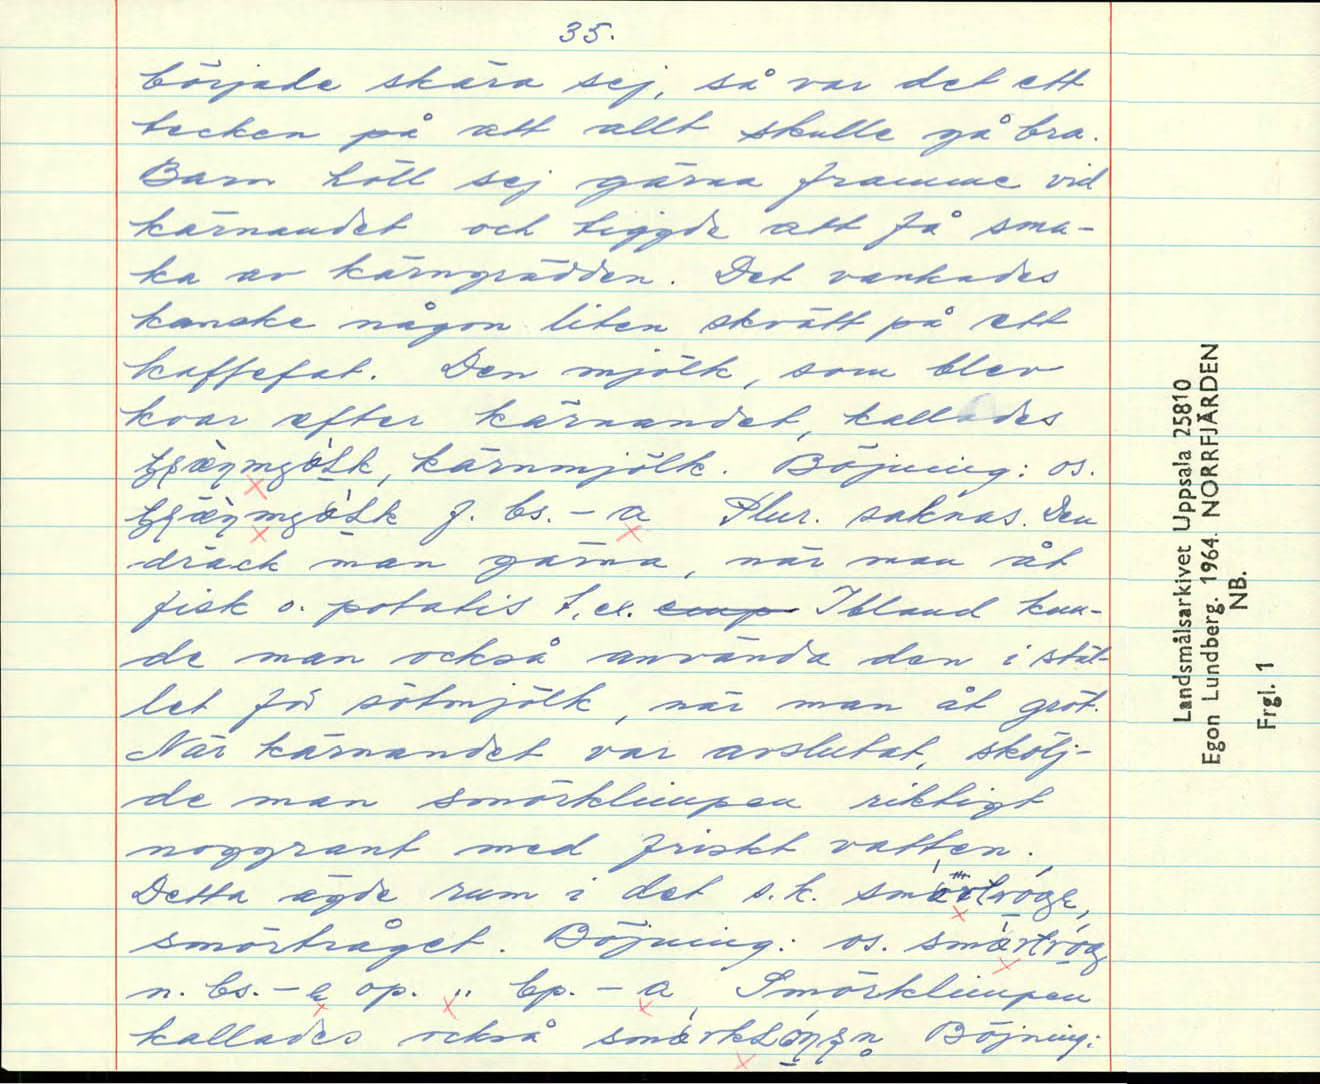 35.
började skära sej, så var det ett
tecken på att allt skulle gå bra.
Barn höll sej gärna framme vid
kärnandet och tiggde att få sma-
ka av kärngrädden. Det vankades
kanske någon liten skvätt på ett
kaffefat. Den mjölk, som blev
kvar efter kärnandet, kallades
kärnmjölk. Böjning: os.
f. bs. - a Plur. saknas. Den
drack man gärna, när man åt
fisk o. potatis t.ex. Ibland kun-
de man också använda den i stäl-
let för sötmjölk, när man åt gröt.
När kärnandet var avslutat, skölj-
de man smörklimpen riktigt
noggrant med friskt vatten.
Detta ägde rum i det s.k.
smörtråget. Böjning: os.
n. bs. - op. " bp. - a Smörklimpen
kallades också Böjning:
Landsmålsarkivet Uppsala 25810
Egon Lundberg. 1964. NORRFJÄRDEN
NB.
Frgl. 1